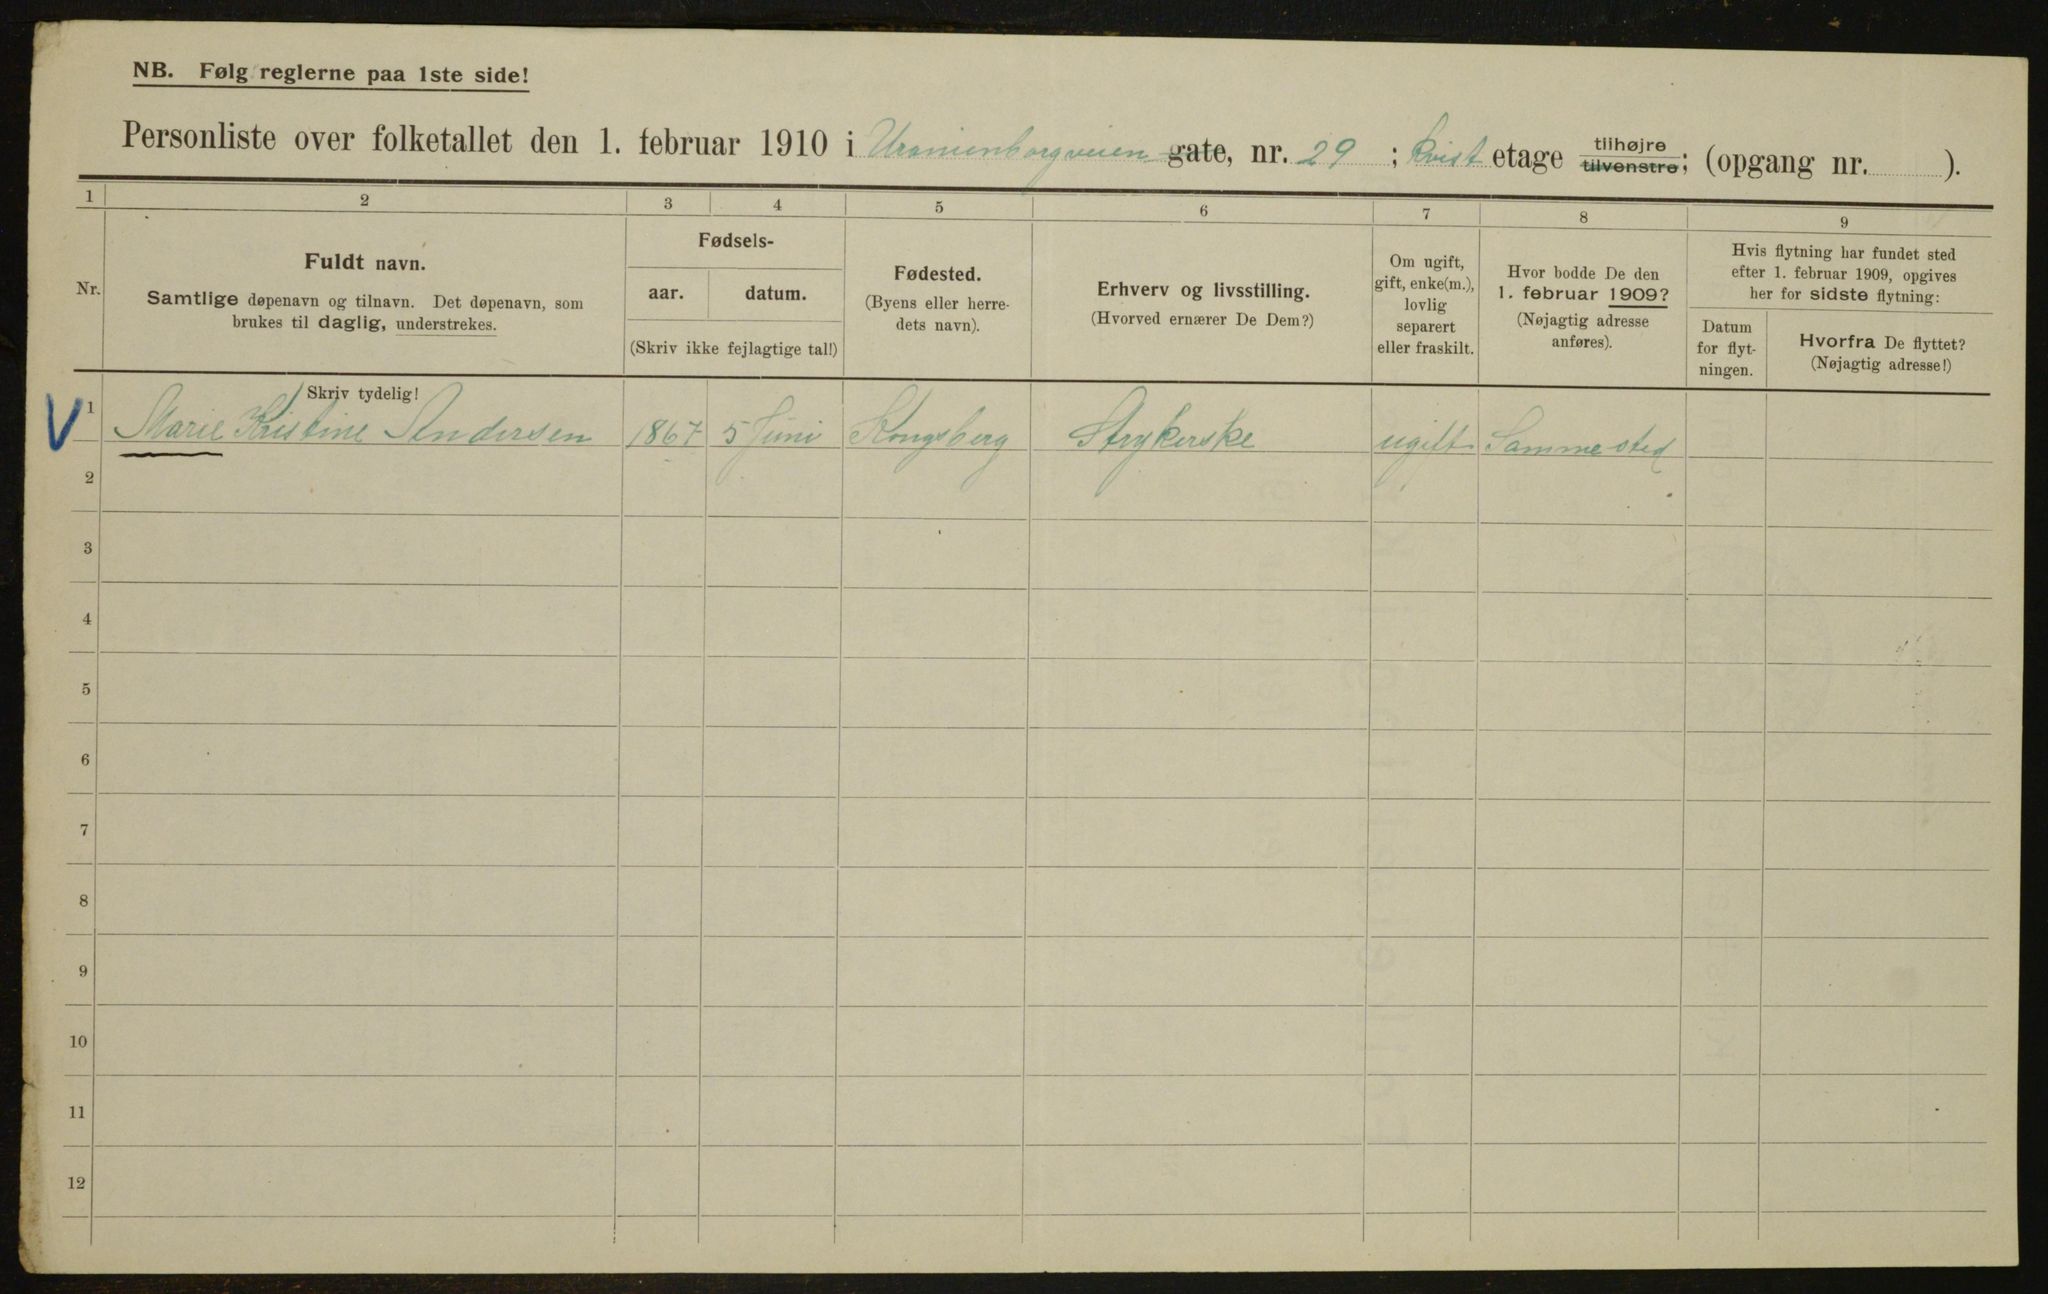 NB. Følg reglerne paa 1ste side!
Personliste over folketallet den 1. februar 1910 i Uranienborgveien gate, nr. 29 ; Kvist etage tilhøjre tilvenstre; (opgang nr. ).
1 2 3 4 5 6 7 8 9
Nr.
Fuldt navn.
Samtlige døpenavn og tilnavn. Det døpenavn, som
brukes til daglig, understrekes.
Fødsels-
aar. datum.
(Skriv ikke fejlagtige tal!)
Fødested.
(Byens eller herre-
dets navn).
Erhverv og livsstilling.
(Hvorved ernærer De Dem?)
Om ugift,
gift, enke(m.),
lovlig
separert
eller fraskilt.
Hvor bodde De den
1. februar 1909?
(Nøjagtig adresse
anføres).
Hvis flytning har fundet sted
efter 1. februar 1909, opgives
her for sidste flytning:
Datum
for flyt-
ningen.
Hvorfra De flyttet?
(Nøjagtig adresse!)
Skriv tydelig!
V 1 Marie Kristine Andersen 1867 5 Juni Kongsberg Strykerske ugift Samme sted
2
3
4
5
6
7
8
9
10
11
12